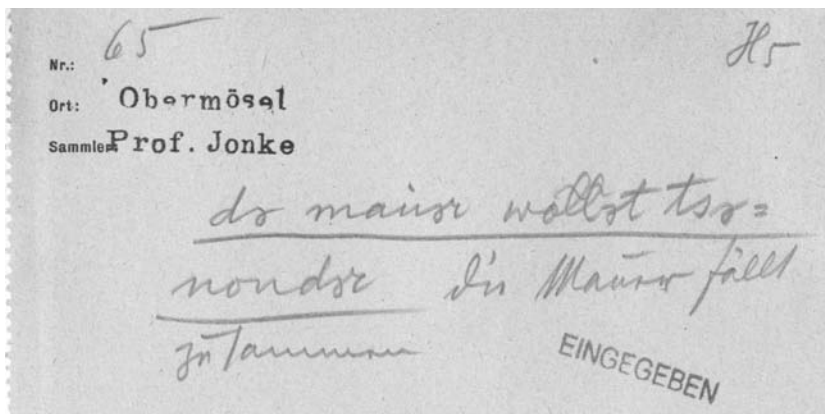 Nr.: 65 H5
Ort: Obermösel
Sammler: Prof. Jonke
də mauər wollət tsə=
nondər die Mauer fällt
zusammen
EINGEGEBEN